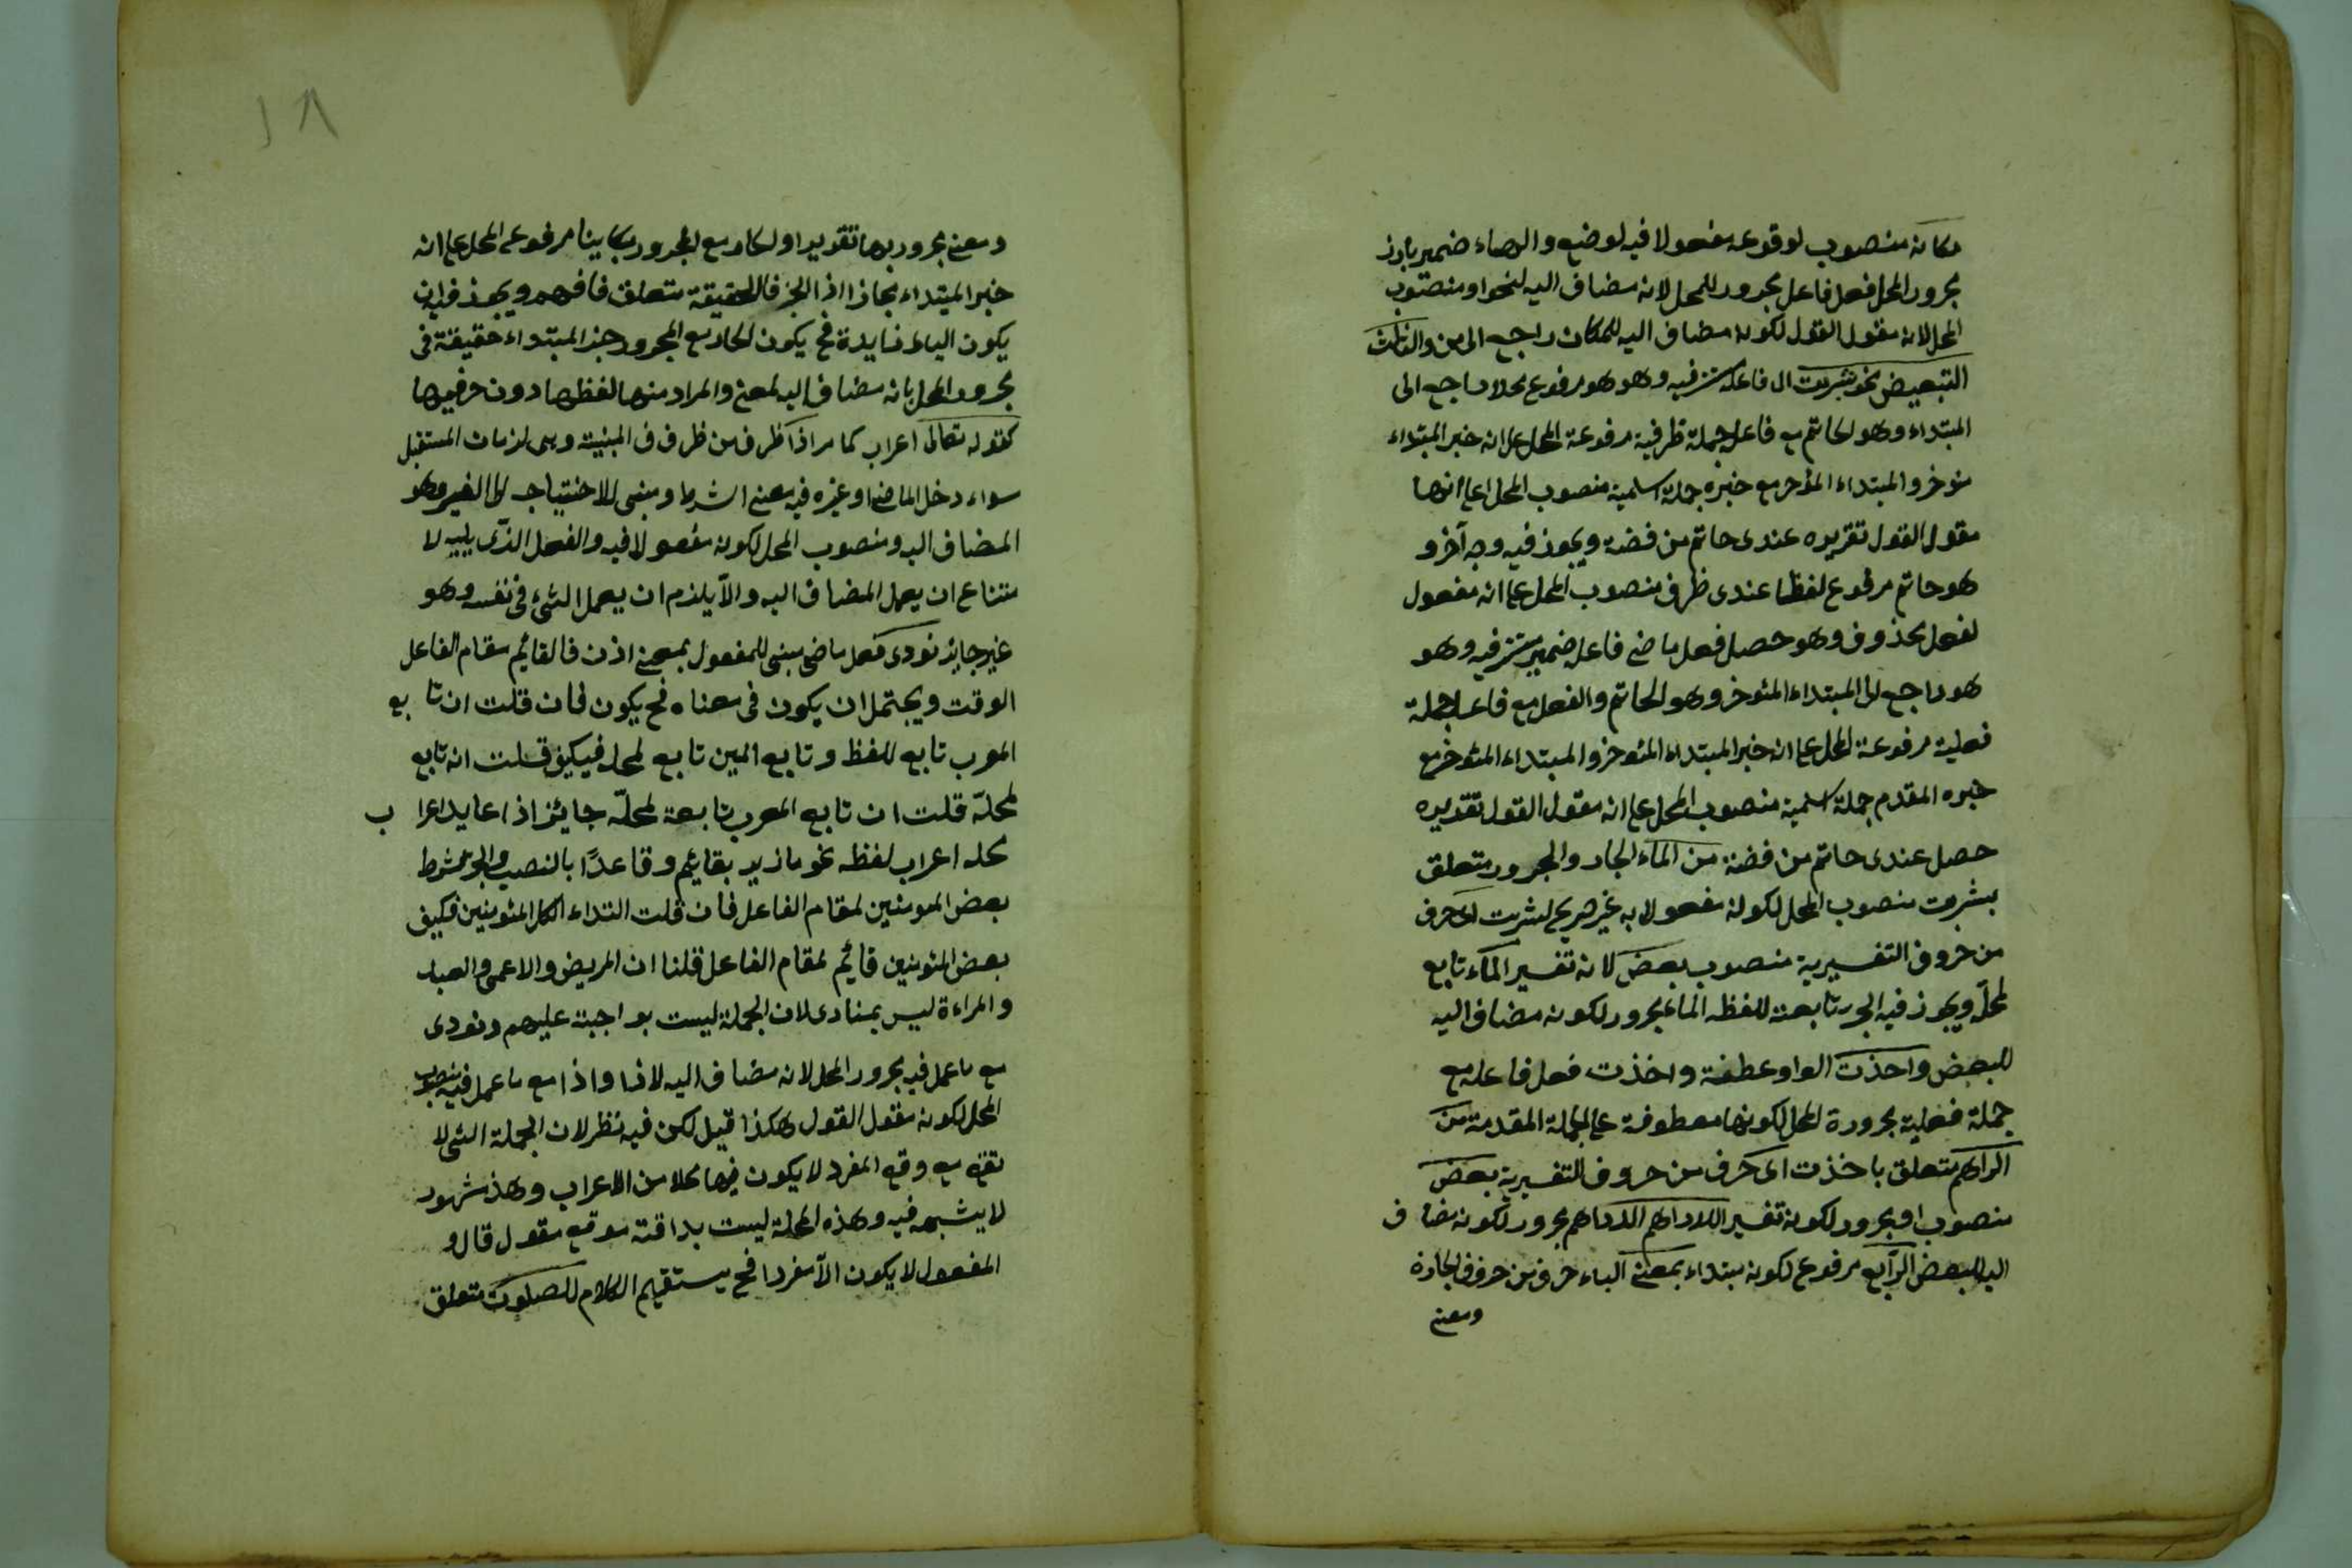 مكانه منصوب لوقوعه مفعولا فيه لوضع والهاء ضمير بارز
مجرور المحل فعل فاعل مجرور المحل لانه مضاف اليه لنحو او منصوب
المحل لانه مقول القول لكونه مضاف اليه للمكان راجع الى من والثالث
التبعيض نحو شربت ال فاعله فيه وهو هو مرفوع محلا راجع الى
المبتداء وهو لخاتم مع فاعله جملة ظرفية مرفوعة المحل على انه خبر المبتداء
مؤخر والمبتداء المؤخر مع خبره جملة اسمية منصوب المحل على انها
مقول القول تقريره عندى خاتم من فضة ويجوز فيه وجه آخر و
هو خاتم مرفوع لفظا عندى ظرف منصوب المحل على انه مفعول
لفعل محذوف وهو حصل فعل ماضى فاعله ضمير مستتر فيه وهو
هو راجع الى المبتداء المئوخر وهو الخاتم والفعل مع فاعله جملة
فعلية مرفوعة المحل على انه خبر المبتداء المئوخر والمبتداء المئوخر مع
خبره المقدم جملة اسمية منصوب المحل على انه مقول القول تقديره
حصل عندى خاتم من فضة من الماء الجار والمجرور متعلق
بشربت منصوب المحل لكونه مفعولا به غير صريح لشربت اى حرف
من حروف التفسيرية منصوب بعض لانه تفسير الماء تابع
لمحله ويجوز فيه الجر تابعة للفظه الماء مجرور لكونه مضاف اليه
للبعض واخذت الواو عطفة واخذت فعل فاعله مع
جملة فعلية مجرورة المحل لكونها معطوفة على الجملة المقدمة من
الدراهم متعلق باخذت اى حرف من حروف التفسيرية بعض
منصوب او مجرور لكونه تفسير الدراهم مجرور لكونه مضاف
اليه للبعض الرابع مرفوع لكونه مبتداء بمعنى الباء حرف من حروف الجارة
ومعنى
١٨
ومعنى مجرور بها تقديرا والجار مع المجرور مرفوع المحل على انه
خبر المبتداء مجازا اذ الخبر فى الحقيقة متعلق فافهم ويجوز فيه ان
يكون الباء زايدة فح يكون الجار مع المجرور خبر المبتداء حقيقة فى
مجرور المحل بانه مضاف اليه لمعنى والمراد منها لفظها دون حرفيتها
كقوله تعالى اعراب كما مر اذا ظرف من ظرفف المبنية وهى لزمان المستقبل
سواء دخل الماضى او غيره فيه معنى الشرط ومبنى للاحتياج الى الغير وهو
المضاف اليه ومنصوب المحل لكونه مفعولا فيه والفعل الذى يليه لا
متناع ان يعمل المضاف اليه والا يلزم ان يعمل الشئ فى نفسه وهو
غير جايز نودى فعل ماضى مبنى للمفعول بمعنى اذن فالقايم مقام الفاعل
الوقت ويحتمل ان يكون فى معناه فح يكون فان قلت ان تابع
المعرب تابع للفظ وتابع المبن تابع لمحل فكيف قلت انه تابع
لمحله قلت ان تابع المعرب تابعة لمحله جايز اذا اعراب
محله اعراب لفظه نحو ما زيد بقايم وقاعدًا بالنصب والجر
بعض المومنين لمقام الفاعل فان قلت النداء المئومنين فكيف
بعض المئومنين قايم لمقام الفاعل قلنا ان المريض والاعمى والعبد
والمراءة ليس بمنادى لان الجملة ليست بواجبة عليهم ونودى
مع ما عمل فيه مجرور المحل لانه مضاف اليه لاذا واذا مع ما عمل فيه منصوب
المحل لكونه مقول القول هكذا قيل لكن فيه نظر لان الجملة التى لا
تقع مع وقع المفرد لا يكون فيها محلا من الاعراب وهذ مشهور
لا يشبهه فيه وهذه الجملة ليست بواقعة موقع مقول قال و
المفعول لا يكون الا مفردا فح يستقيم الكلام للصلوة متعلق